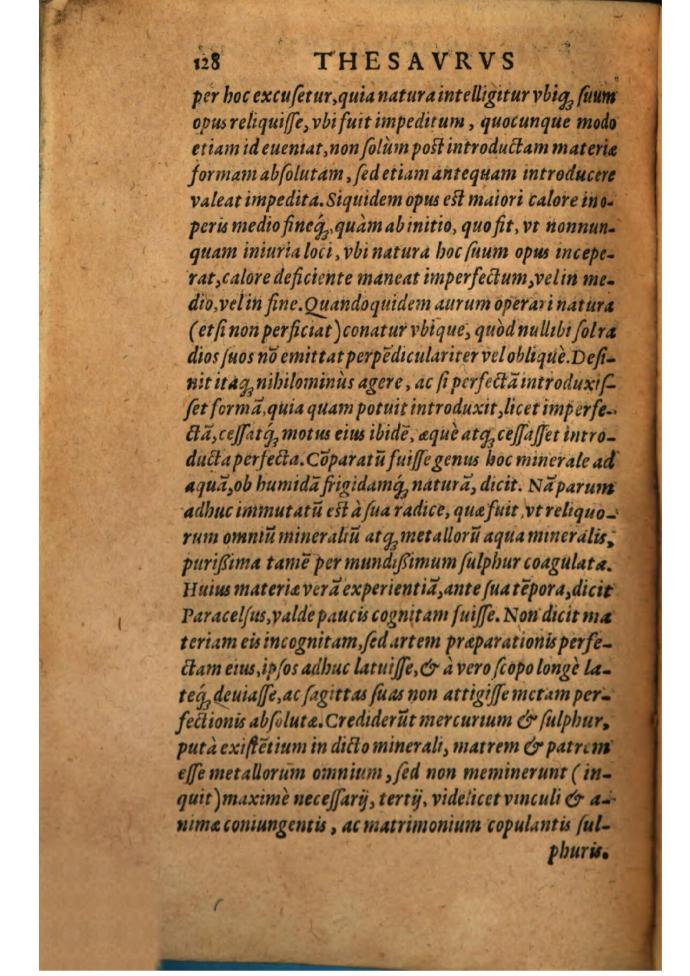 128 THESAVRVS
per hoc excuſetur, quia natura intelligitur vbiqꝫ ſuum
opus reliquiſſe, vbi fuit impeditum, quocunque modo
etiam id eueniat, non ſolùm post introductam materiæ
formam abſolutam, ſed etiam antequam introducere
valeat impedita. Siquidem opus est maiori calore in o-
peris medio fineqꝫ́, quàm ab initio, quo fit, vt nonnun-
quam iniuria loci, vbi natura hoc ſuum opus incepe-
rat, calore deficiente maneat imperfectum, vel in me-
dio, vel in fine. Quandoquidem aurum operari natura
(etſi non perficiat) conatur vbique, quòd nullibi ſol ra
dios ſuos nō emittat perpēdiculariter vel obliquè. Deſi-
nit itaqꝫ nihilominùs agere, ac ſi perfectā introduxiſ-
ſet formā, quia quam potuit introduxit, licet imperfe-
ctā, ceſſatqꝫ́ motus eius ibidē, æquè atqꝫ ceſſaſſet intro-
ducta perfecta. Cōparatū fuiſſe genus hoc minerale ad
aquā, ob humidā frigidamqꝫ́ naturā, dicit. Nā parum
adhuc immutatū est à ſua radice, quæ fuit, vt reliquo-
rum omniū mineraliū atqꝫ metallorū aqua mineralis,
purißima tamē per mundißimum ſulphur coagulata.
Huius materiæ verā experientiā, ante ſua tēpora, dicit
Paracelſus, valde paucis cognitam fuiſſe. Non dicit ma
teriam eis incognitam, ſed artem præparationis perfe-
ctam eius, ipſos adhuc latuiſſe, & à vero ſcopo longè la-
teqꝫ́ deuiaſſe, ac ſagittas ſuas non attigiſſe metam per-
fectionis abſolutæ. Crediderūt mercurium & ſulphur,
putà exiſtētium in dicto minerali, matrem & patrem
eſſe metallorum omnium, ſed non meminerunt (in-
quit) maximè neceſſarij, tertij, videlicet vinculi & a-
nimæ coniungentis, ac matrimonium copulantis ſul-
phuris.